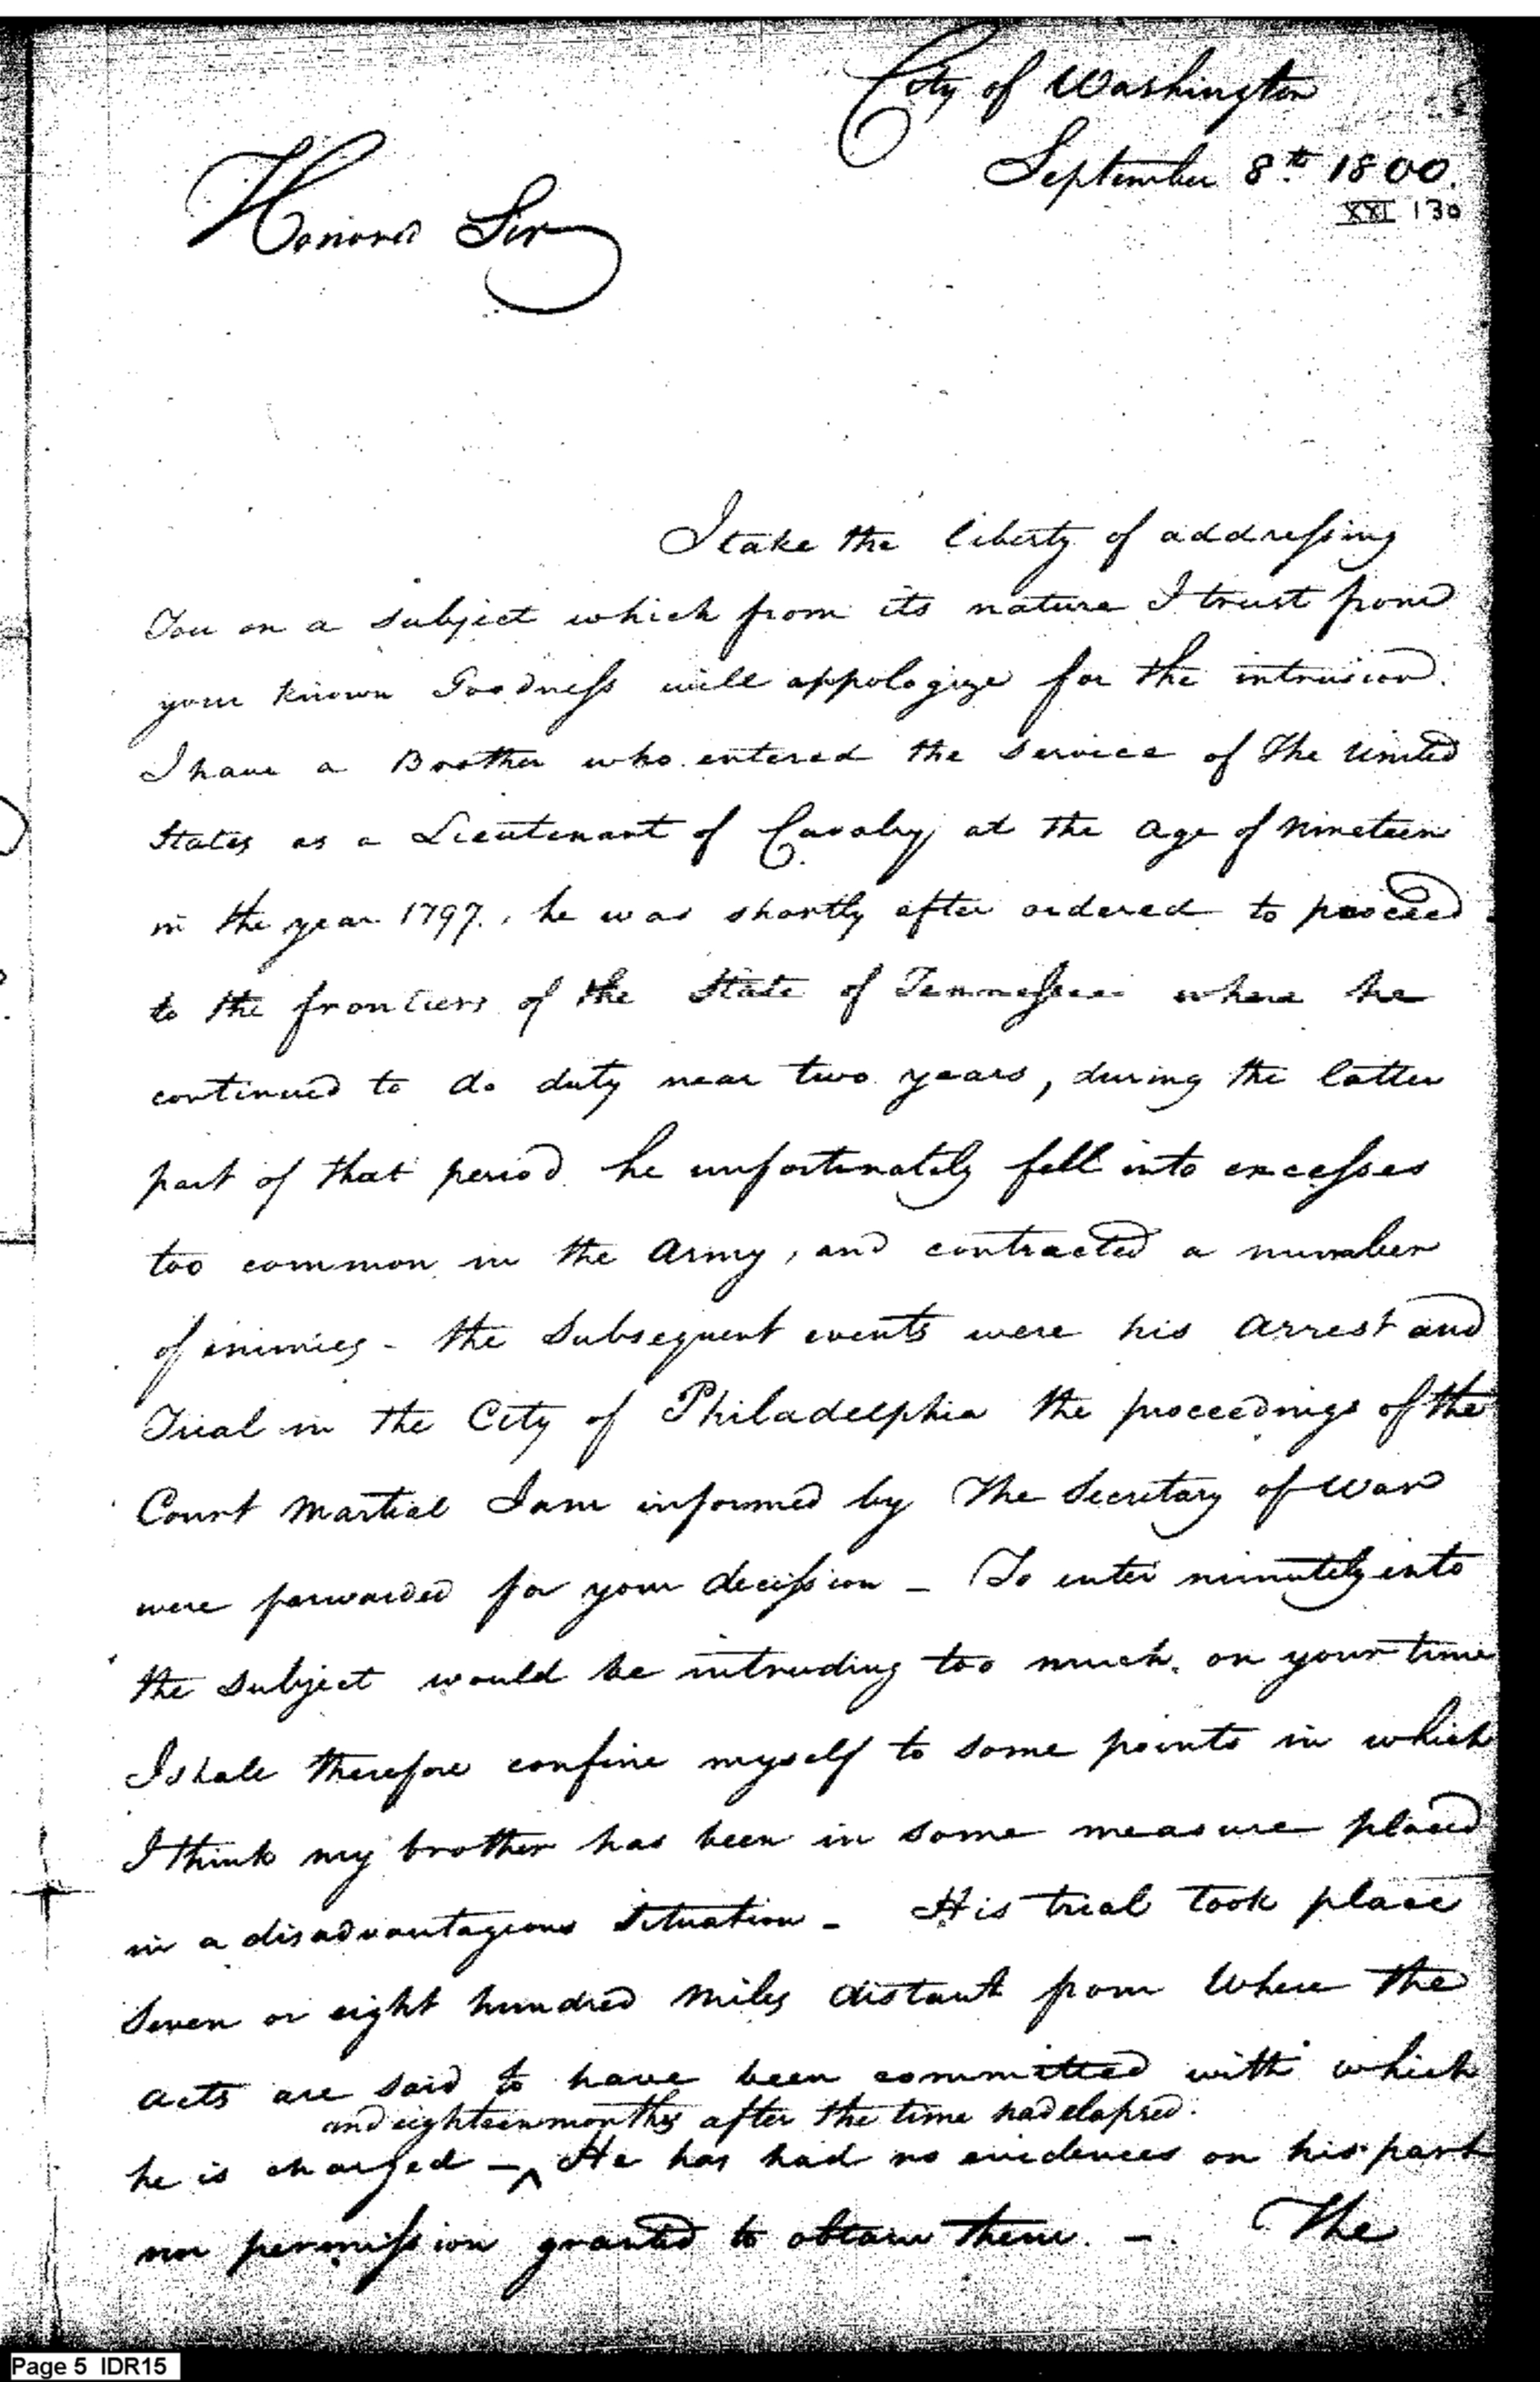 City of Washington
September 8th 1800.
XXI 130
Honored Sir
I take the liberty of addressing
You on a subject which from its nature I trust from
your known Goodness will appologize for the intrusion.
I have a Brother who entered the service of The United
States as a Lieutenant of Cavalry at the age of Nineteen
in the year 1797., he was shortly after ordered to proceed
to the frontiers of the State of Tennessee where he
continued to do duty near two years, during the latter
part of that period he unfortunately fell into excesses
too common in the Army, and contracted a number
of enimies - the Subsequent events were his Arrest and
Trial in the City of Philadelphia the proceedings of the
Court Martial I am informed by The Secretary of War
were forwarded for your decission - To enter minutely into
the Subject would be intruding too much, on your time
I shall therefore confine myself to some points in which
I think my brother has been in some measure placed
in a disadvantageous Situation - His trial took place
Seven or eight hundred Miles distant from Where the
Acts are said to have been committed with which
and eighteen months after the time had elapsed.
he is charged - ^ He has had no evidences on his part
nor permission granted to obtain them. - The
Page 5 IDR15